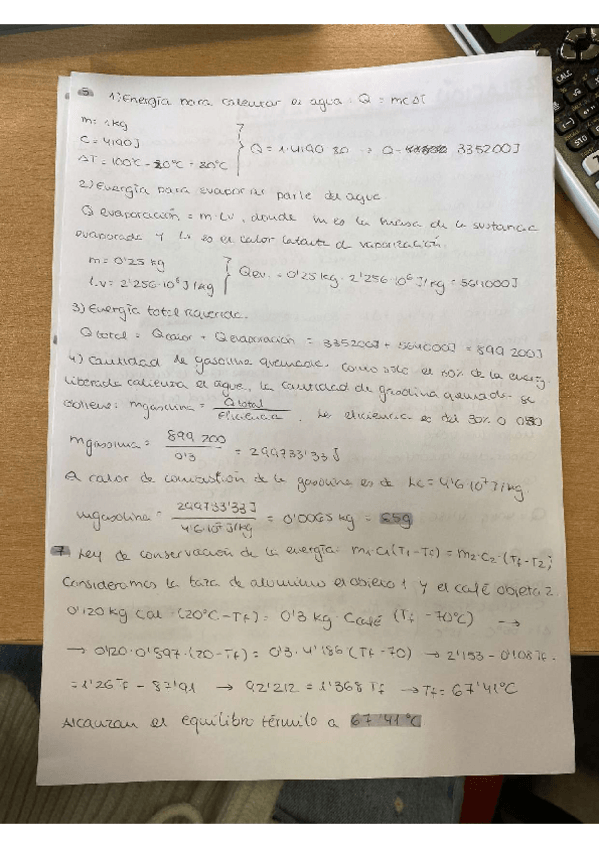 5 1) Energía para calentar el agua: Q = mcΔT
m = 1kg
C = 4190J
ΔT = 100°C - 20°C = 80°C
Q = 1·4190·80 → Q = 335200J
2) Energía para evaporar parte del agua
Q evaporación = m·Lv, donde m es la masa de la sustancia
evaporada y Lv es el calor latente de vaporización.
m = 0'25 kg
Lv = 2'256·10⁶ J/kg
Qev. = 0'25 kg · 2'256·10⁶ J/kg = 564000J
3) Energía total requerida.
Qtotal = Qcalor + Qevaporación = 335200J + 564000J = 899200J
4) Cantidad de gasolina quemada. Como solo el 30% de la energ.
liberada calienta el agua, la cantidad de gasolina quemada se
obtiene: mgasolina = Qtotal / Eficiencia. La eficiencia es del 30% o 0'30
mgasolina = 899 200 / 0'3 = 299733'33 J
El calor de combustión de la gasolina es de Lc = 4'6·10⁷ J/kg
mgasolina = 299733'33 J / 4'6·10⁷ J/kg = 0'0065 kg = 65g
7 Ley de conservación de la energía: m₁·C₁(T₁-Tf) = m₂·C₂·(Tf-T₂;
Consideramos la taza de aluminio el objeto 1 y el café objeto 2.
0'120 kg Cal · (20°C - Tf) = 0'3 kg · Ccafé (Tf - 70°C) →
→ 0'120·0'897·(20-Tf) = 0'3·4'186·(Tf-70) → 2'153 - 0'108 Tf =
= 1'26 Tf - 87'91 → 92'212 = 1'368 Tf → Tf = 67'41°C
Alcanzan el equilibro térmilo a 67'41°C